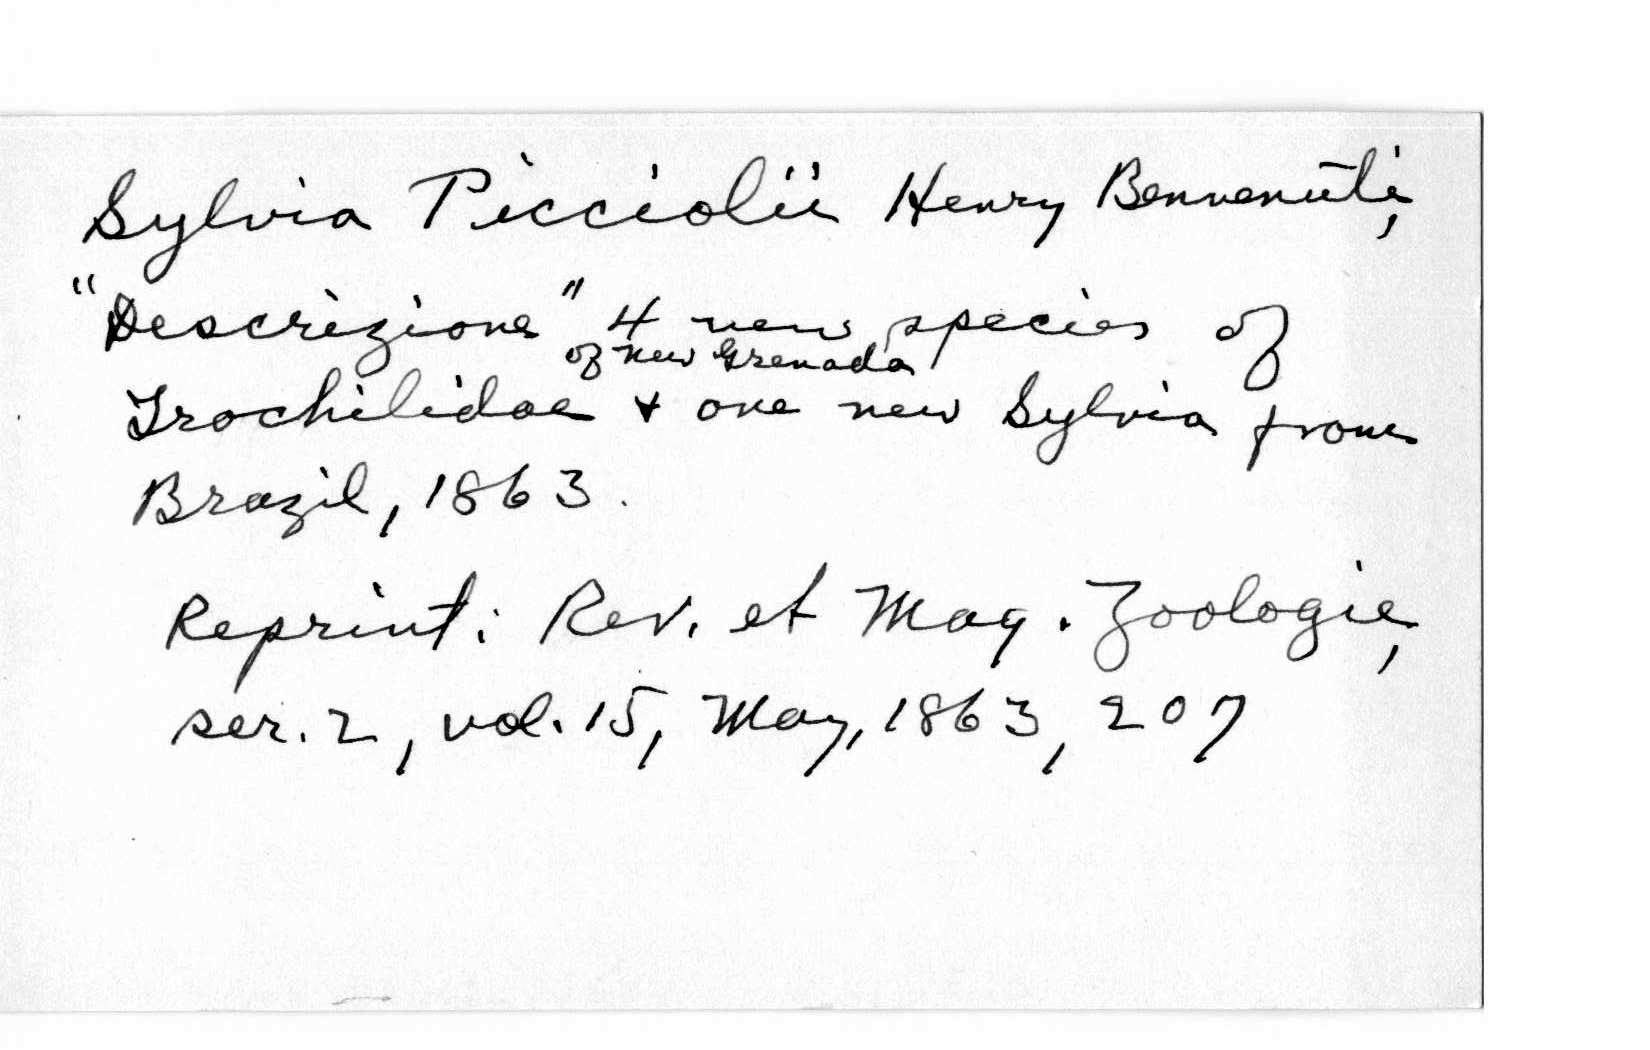 Sylvia Picciolii Henry Benvenuti,
"Descrizione" 4 new species of
of New Grenada
Trochilidae & one new Sylvia from
Brazil, 1863.
Reprint: Rev. et Mag. Zoologie,
ser. 2, vol. 15, May, 1863, 207